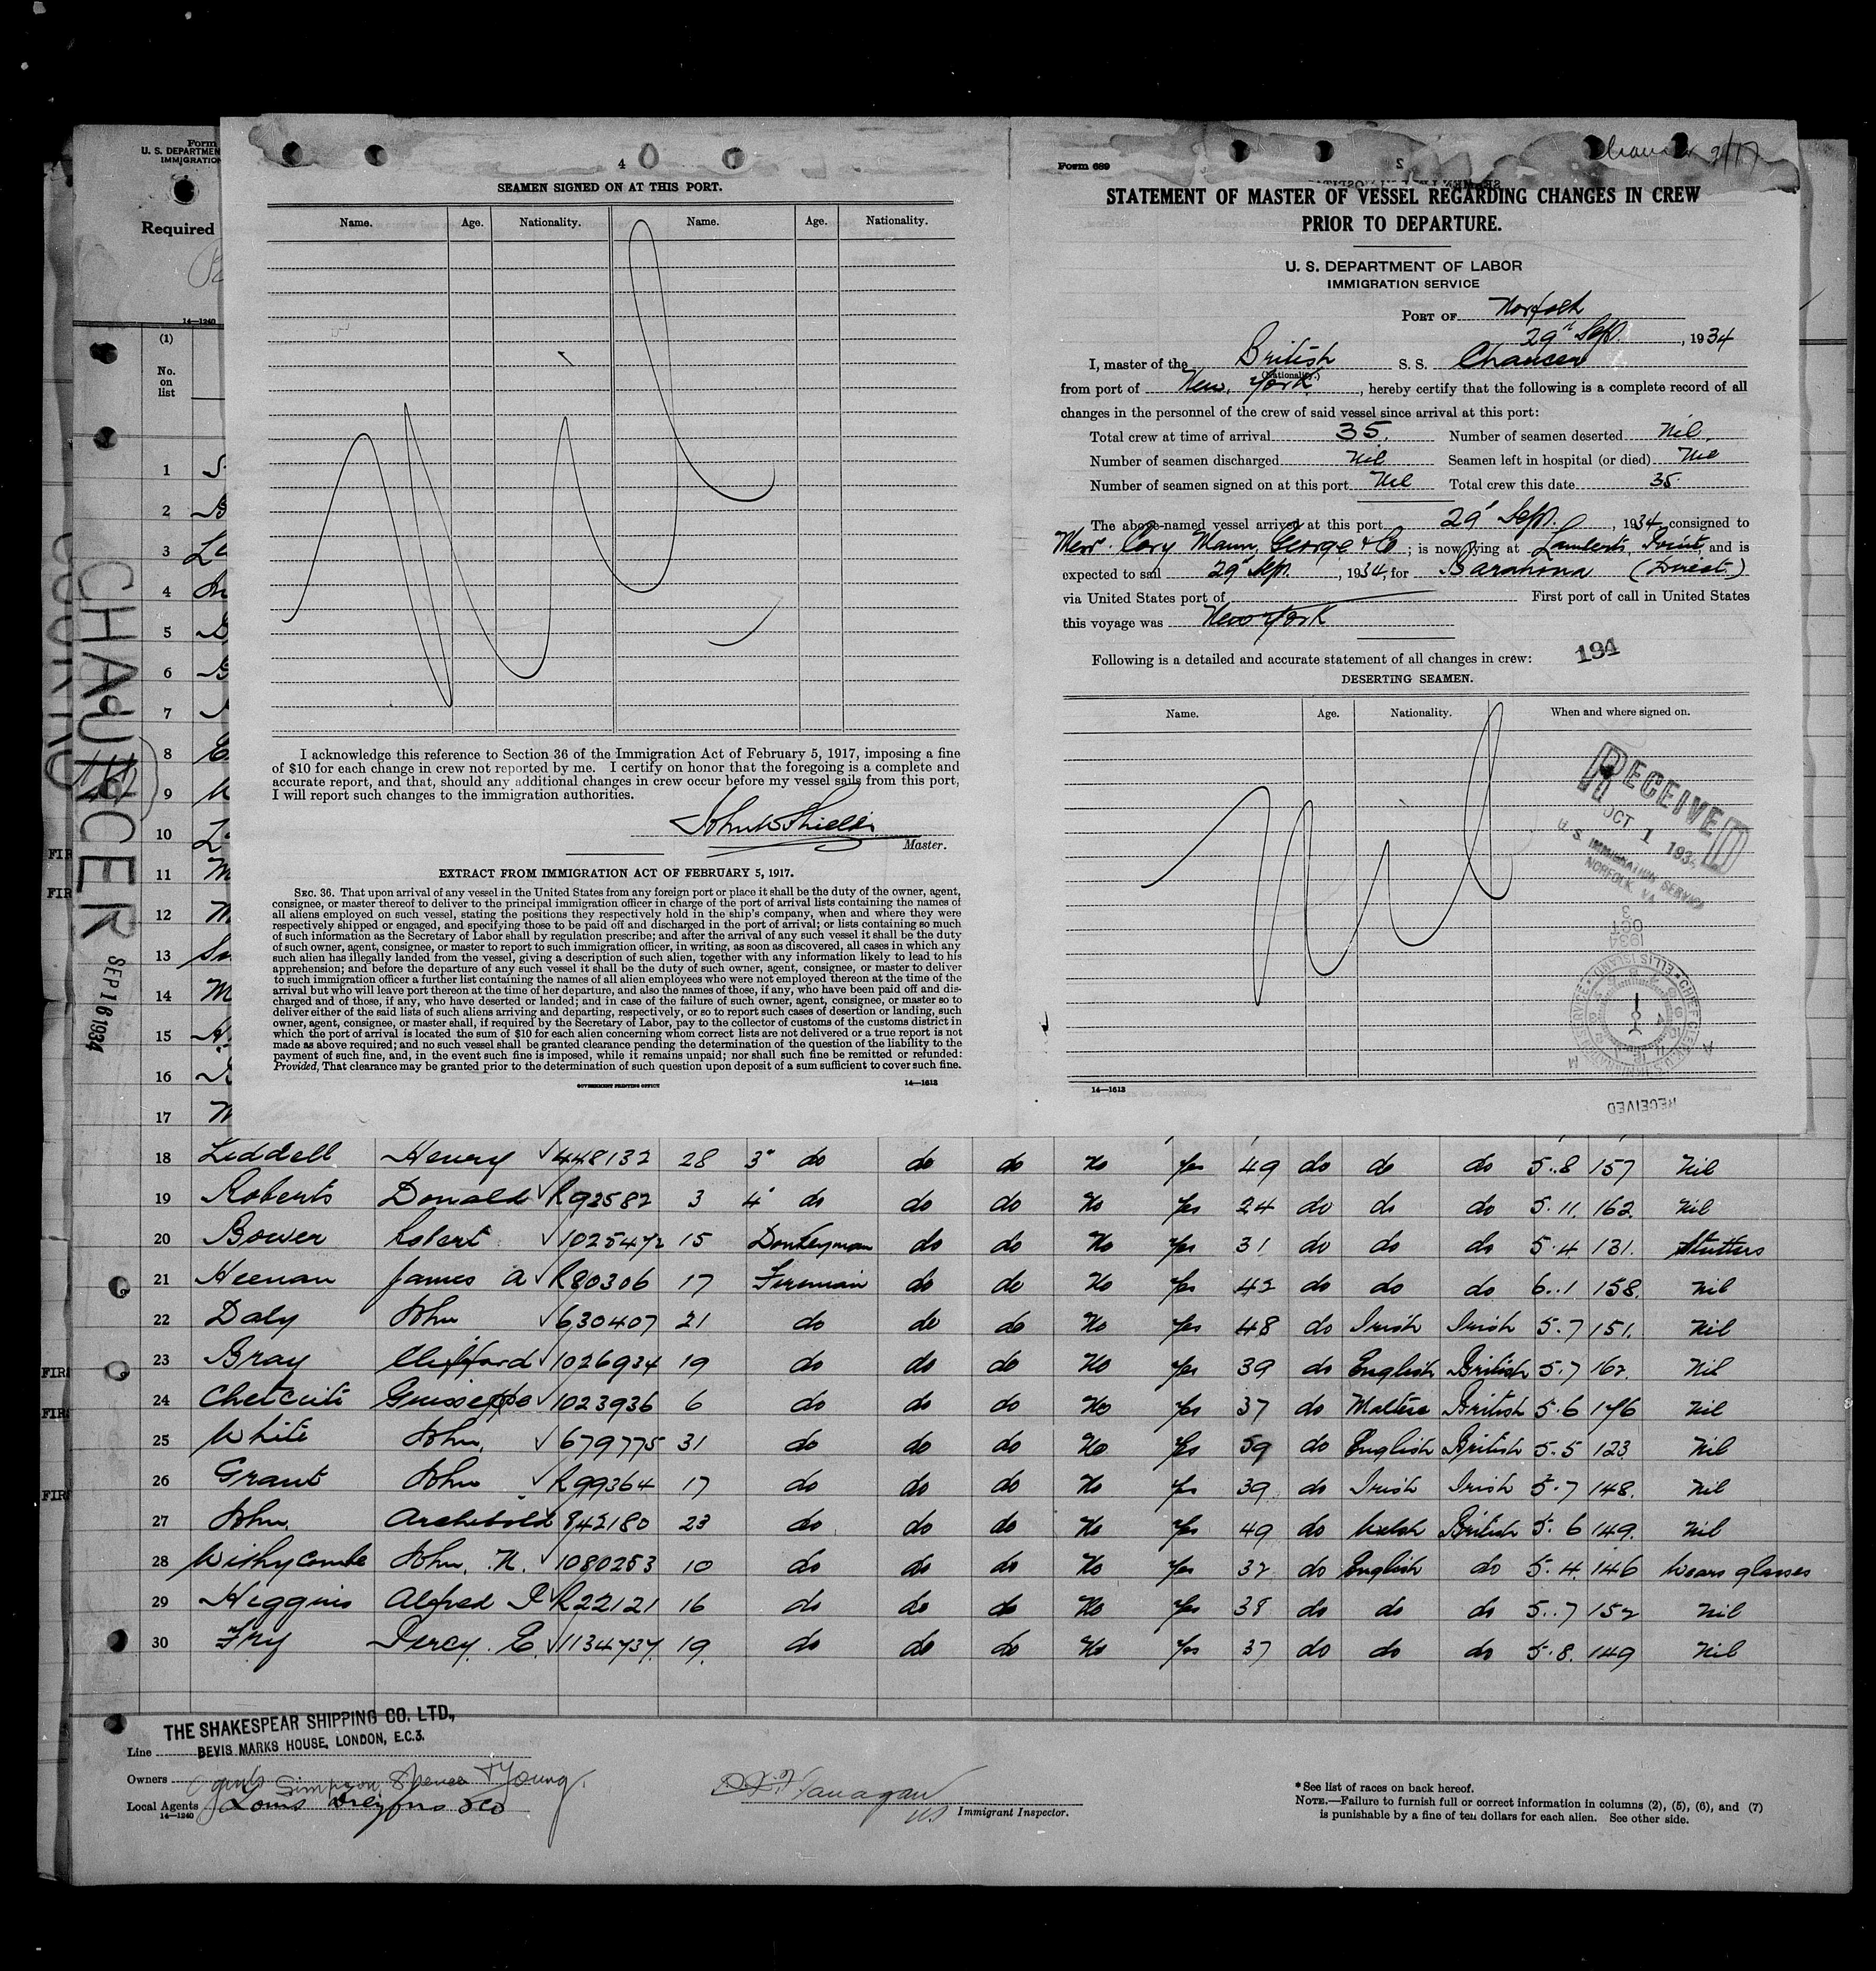 Form
U. S. DEPARTMEN
IMMIGRATION
Required
14—1240
(1)
No.
on
list
1
2
3
4
5
6
7
8
9
10
11
12
13
14
15
16
17
CHAUCER
SEP 16 1934
FIR
FIR
FIR
FIR
FIR
4
SEAMEN SIGNED ON AT THIS PORT.
Name. Age. Nationality. Name. Age. Nationality.
Nil
I acknowledge this reference to Section 36 of the Immigration Act of February 5, 1917, imposing a fine
of $10 for each change in crew not reported by me. I certify on honor that the foregoing is a complete and
accurate report, and that, should any additional changes in crew occur before my vessel sails from this port,
I will report such changes to the immigration authorities.
John W Shields
Master.
EXTRACT FROM IMMIGRATION ACT OF FEBRUARY 5, 1917.
SEC. 36. That upon arrival of any vessel in the United States from any foreign port or place it shall be the duty of the owner, agent,
consignee, or master thereof to deliver to the principal immigration officer in charge of the port of arrival lists containing the names of
all aliens employed on such vessel, stating the positions they respectively hold in the ship's company, when and where they were
respectively shipped or engaged, and specifying those to be paid off and discharged in the port of arrival; or lists containing so much
of such information as the Secretary of Labor shall by regulation prescribe; and after the arrival of any such vessel it shall be the duty
of such owner, agent, consignee, or master to report to such immigration officer, in writing, as soon as discovered, all cases in which any
such alien has illegally landed from the vessel, giving a description of such alien, together with any information likely to lead to his
apprehension; and before the departure of any such vessel it shall be the duty of such owner, agent, consignee, or master to deliver
to such immigration officer a further list containing the names of all alien employees who were not employed thereon at the time of the
arrival but who will leave port thereon at the time of her departure, and also the names of those, if any, who have been paid off and dis-
charged and of those, if any, who have deserted or landed; and in case of the failure of such owner, agent, consignee, or master so to
deliver either of the said lists of such aliens arriving and departing, respectively, or so to report such cases of desertion or landing, such
owner, agent, consignee, or master shall, if required by the Secretary of Labor, pay to the collector of customs of the customs district in
which the port of arrival is located the sum of $10 for each alien concerning whom correct lists are not delivered or a true report is not
made as above required; and no such vessel shall be granted clearance pending the determination of the question of the liability to the
payment of such fine, and, in the event such fine is imposed, while it remains unpaid; nor shall such fine be remitted or refunded:
Provided, That clearance may be granted prior to the determination of such question upon deposit of a sum sufficient to cover such fine.
GOVERNMENT PRINTING OFFICE 14—1613
Form 689
STATEMENT OF MASTER OF VESSEL REGARDING CHANGES IN CREW
PRIOR TO DEPARTURE.
U. S. DEPARTMENT OF LABOR
IMMIGRATION SERVICE
PORT OF Norfolk
29" Sept. , 1934
I, master of the British S. S. Chaucer
(Nationality.)
from port of New York , hereby certify that the following is a complete record of all
changes in the personnel of the crew of said vessel since arrival at this port:
Total crew at time of arrival 35. Number of seamen deserted Nil.
Number of seamen discharged Nil Seamen left in hospital (or died) Nil
Number of seamen signed on at this port Nil Total crew this date 35.
The above-named vessel arrived at this port 29' Sept. , 1934 consigned to
Messr. Cory Mann, George & Co ; is now lying at Lamberts Point and is
expected to sail 29" Sep. , 1934, for Barahona (Direct)
via United States port of First port of call in United States
this voyage was New York
Following is a detailed and accurate statement of all changes in crew: 194
DESERTING SEAMEN.
Name. Age. Nationality. When and where signed on.
Nil
RECEIVED
OCT 1 1934
U. S. IMMIGRATION SERVICE
NORFOLK, VA.
OCT
1934
RECEIVED
14—1613
18 Liddell Henry 448132 28 3" do do do No Yes 49 do do do 5.8 157 Nil
19 Roberts Donald R93582 3 4" do do do No Yes 24 do do do 5.11. 162. Nil
20 Bower Robert 1025472 15 Donkeyman do do No Yes 31 do do do 5.4 131. Stutters
21 Heenan James A R80306 17 Fireman do do No Yes 42 do do do 6.1 158. Nil
22 Daly John 630407 21 do do do No Yes 48 do Irish Irish 5.7 151. Nil
23 Bray Clifford 1026934 19 do do do No Yes 39 do English British 5.7 162. Nil
24 Chetcuti Guisseppe 1023936 6 do do do No Yes 37 do Maltese British 5.6 176 Nil
25 White John. 679775 31 do do do No Yes 59 do English British 5.5 123 Nil
26 Grant John R99364 17 do do do No Yes 39 do Irish Irish 5.7 148. Nil
27 John. Archibold 842180 23 do do do No Yes 49 do Welsh British 5.6 149. Nil
28 Withycombe John. N. 1080253 10 do do do No Yes 32 do English do 5.4. 146 Wears glasses
29 Higgins Alfred P R22121 16 do do do No Yes 38 do do do 5.7 152 Nil
30 Fry Percy. E. 1134737. 19. do do do No Yes 37 do do do 5.8. 149 Nil
THE SHAKESPEAR SHIPPING CO. LTD.,
Line BEVIS MARKS HOUSE, LONDON, E.C.3.
Owners agents Simpson, Spence & Young.
Local Agents Louis Dreyfus & Co
14—1240
Flanagan
Immigrant Inspector.
* See list of races on back hereof.
NOTE.—Failure to furnish full or correct information in columns (2), (5), (6), and (7)
is punishable by a fine of ten dollars for each alien. See other side.